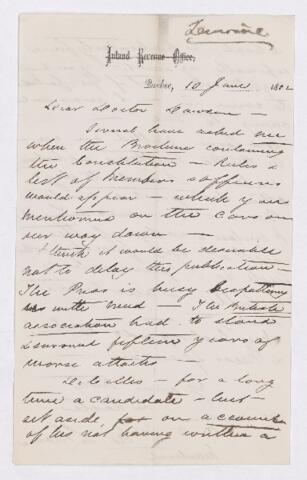 Lemoine
Inland Revenue Office,
Quebec, 10 June 1882
Dear Doctor Dawson —
Several have asked me
when the Brochure containing
the Constitution — Rules &
list of members & officers
would appear — which you
mentioned on the cars on
our way down —
I think it would be desirable
not to delay this publication —
The Press is busy
us with mud — The British
association had to stand
several years of
worse attacks —
LeSueur — for a long
time a candidate — but
set aside, on account
of his not having written a